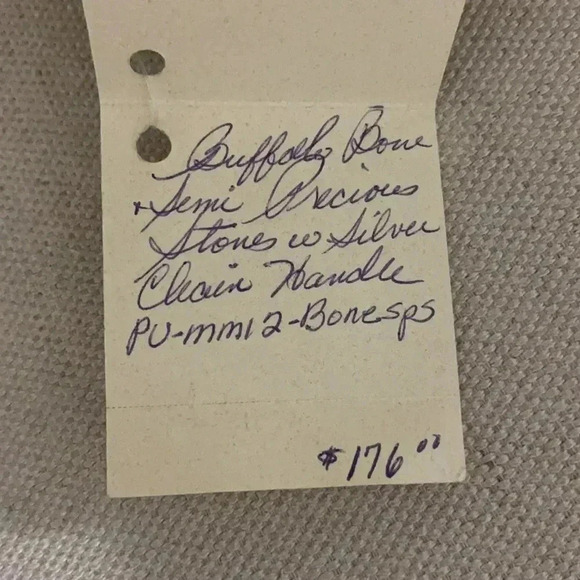 Buffalo Bone
+ Semi Precious
Stones w Silver
Chain Handle
PU-mm12-Bonesps
$176.00